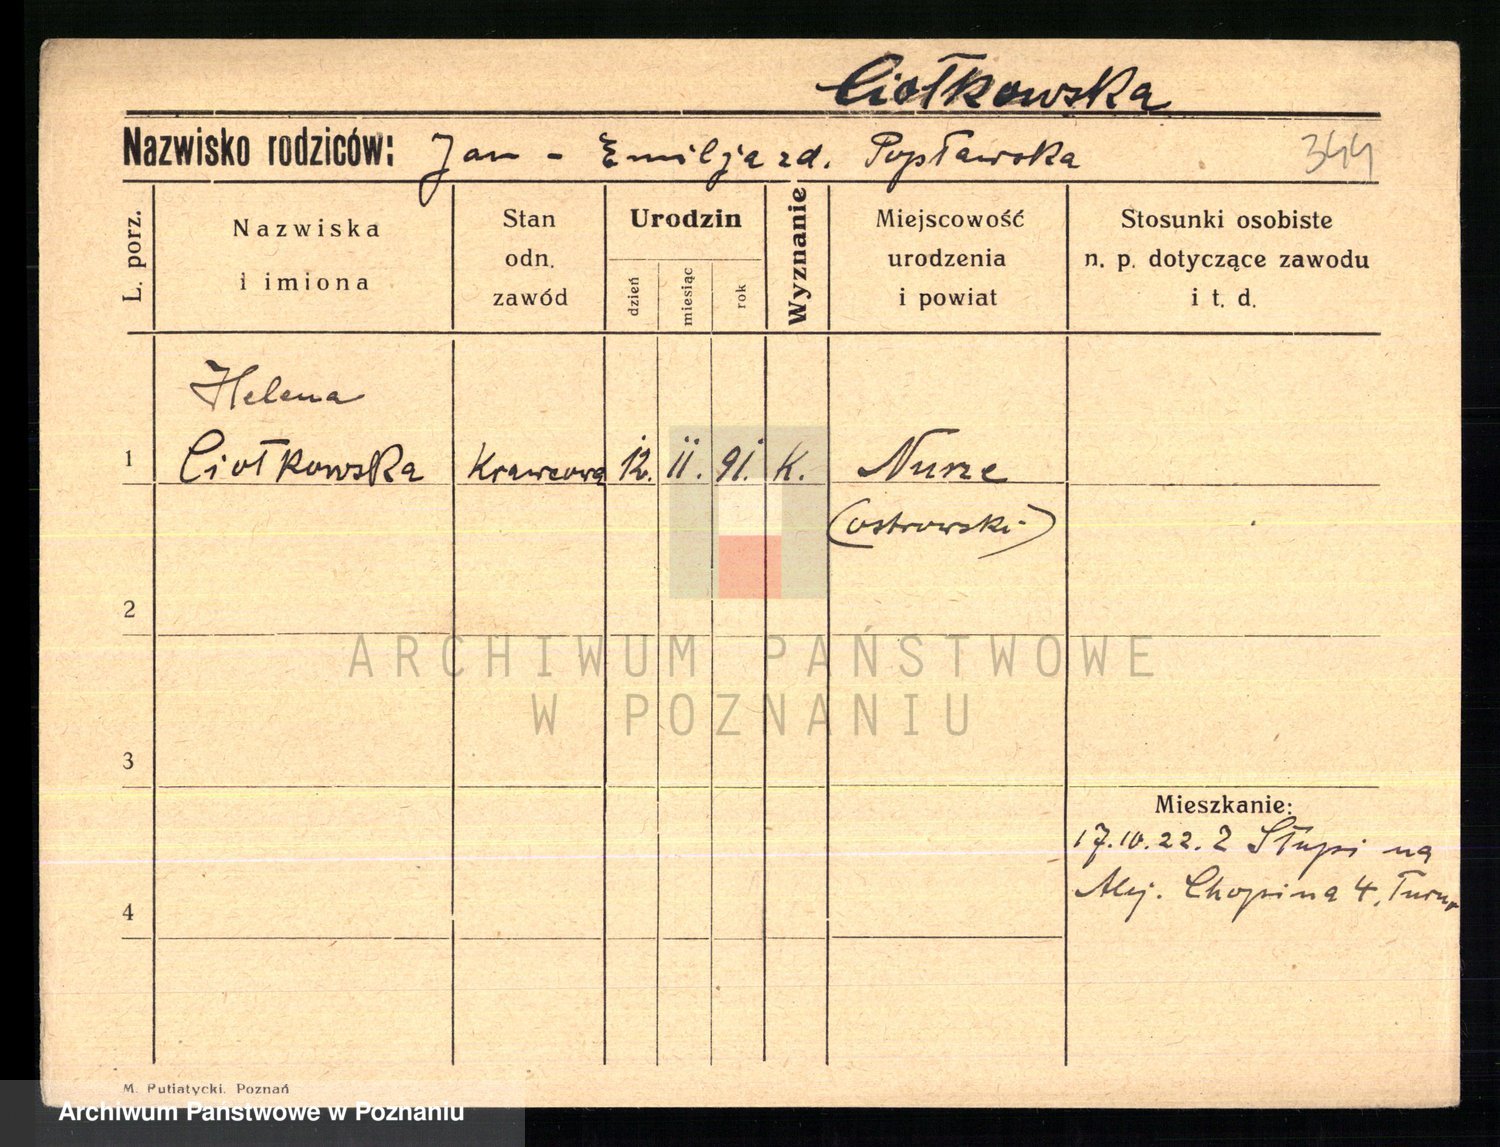 Ciołkowska
Nazwisko rodziców: Jan - Emilja zd. Popławska 344
L. porz.
Nazwiska
i imiona
Stan
odn.
zawód
Urodzin
dzień
miesiąc
rok
Wyznanie
Miejscowość
urodzenia
i powiat
Stosunki osobiste
n. p. dotyczące zawodu
i t. d.
Helena
1 Ciołkowska Krawcowa 12. II. 91. K. Nurze
(ostrowski)
2
ARCHIWUM PAŃSTWOWE
W POZNANIU
3
Mieszkanie:
17.10.22. Z Słupi na
4 Alej. Chopina 4,
M. Putiatycki. Poznań
Archiwum Państwowe w Poznaniu